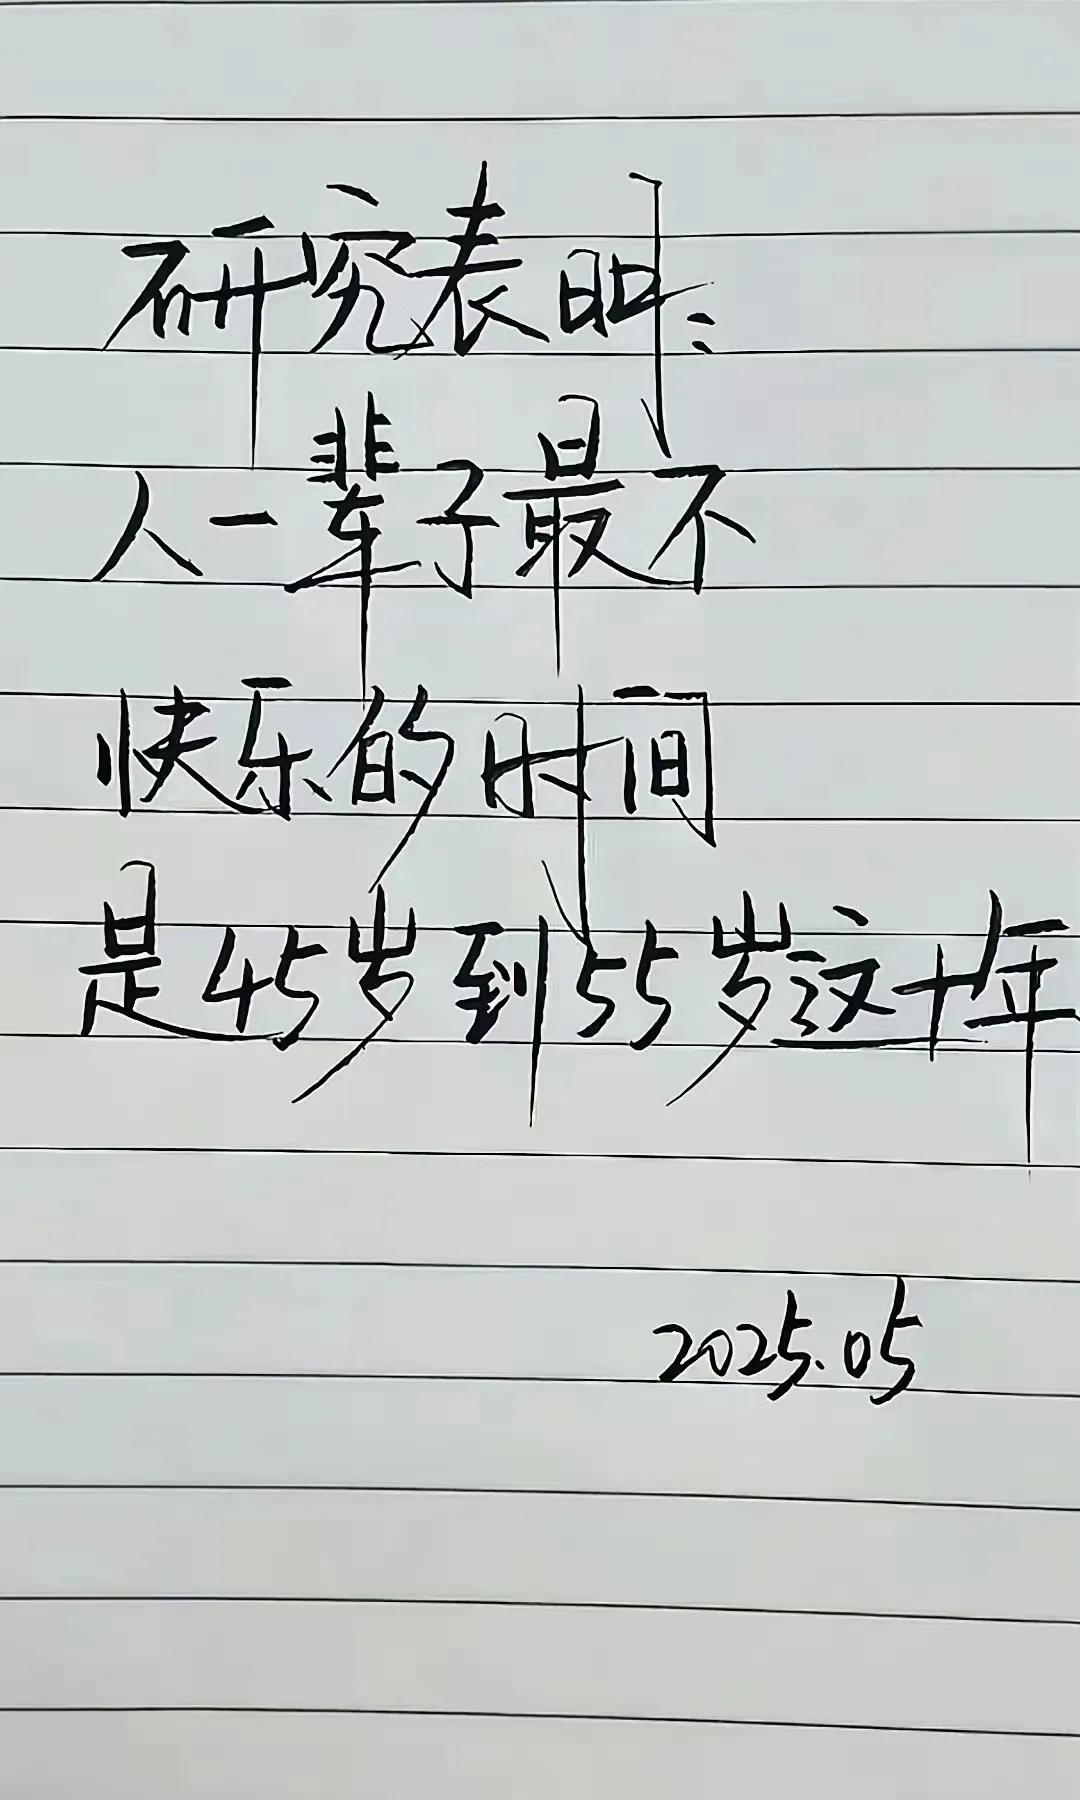 研究表明:
人一辈子最不
快乐的时间
是45岁到55岁这十年
2025.05